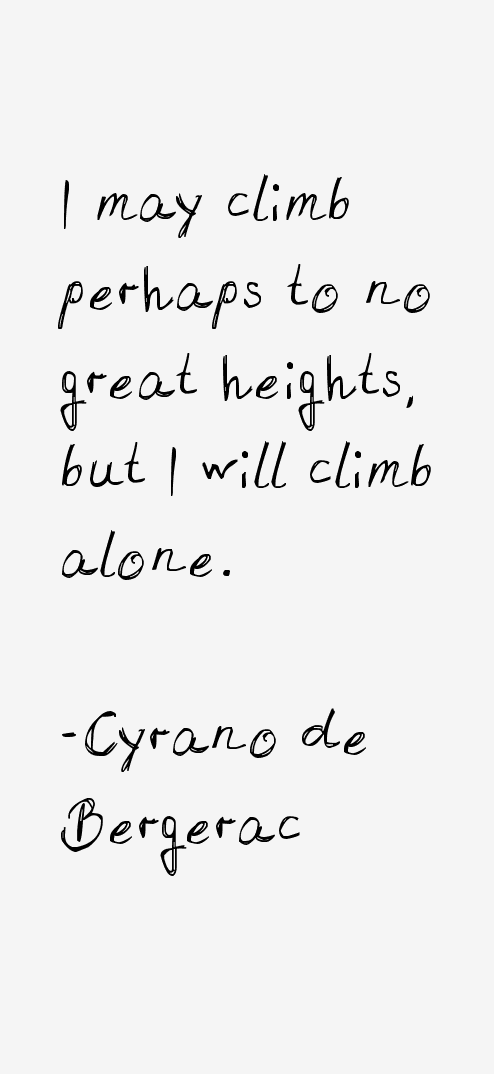 I may climb
perhaps to no
great heights,
but I will climb
alone.
-Cyrano de
Bergerac